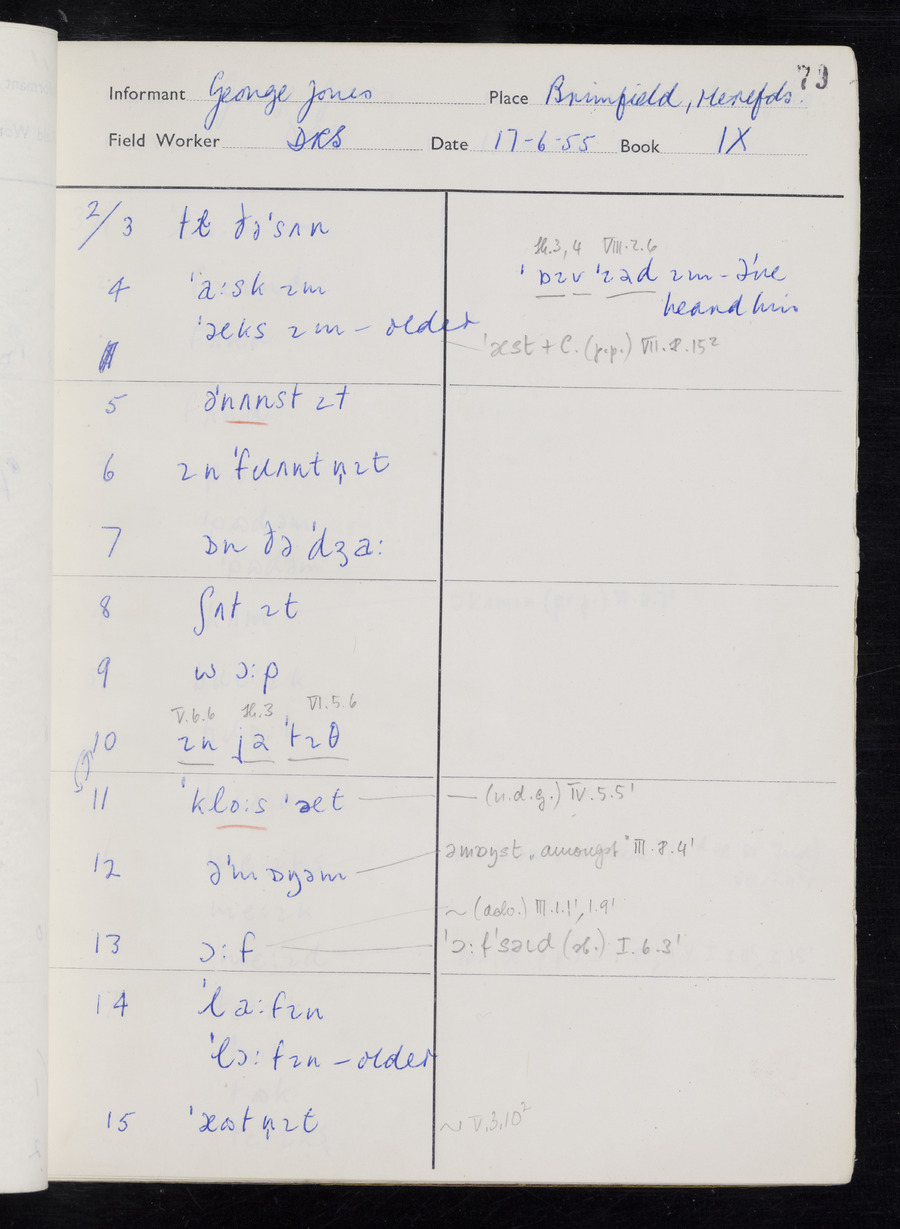 79
Informant George Jones Place Brimfield, Herefds.
Field Worker DRS Date 17-6-55 Book IX
2/3 tɛ ðə'sʌn
4 'a:sk ɪm
'æks ɪm – older
5 ə'nʌnst ɪt
6 ɪn 'fɹʌnt n̩ɪt
7 ɒn ðə 'dʒa:
8 ʃʌt ɪt
9 wɔ:p
V.6.6 VI.5.6
10 ɪn jə 'tɪθ
11 'klo:s 'æt
12 ə'mɒŋəm
13 ɔ:f
14 'la:fɪn
'lɔ:fɪn – older
15 'æʊt n̩ɪt
3, 4 VIII.2.6
'ɒɪv 'ɪəd ɪm – I've
heard him
'æst + C. (p.p.) VIII.8.15²
— (n.d.g.) IV.5.5¹
əmɒŋst "amongst" III.8.4¹
~ (adv.) III.1.1¹, 1.9¹
'ɔ:f'səɪd (sb.) I.6.3¹
~ V.3.10²